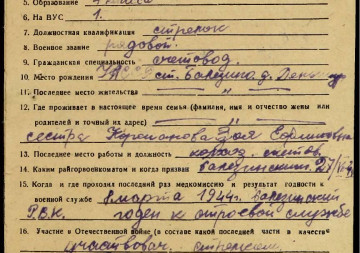 5. Образование 4 класса
6. На ВУС 1.
7. Должностная квалификация стрелок
8. Военное звание рядовой.
9. Гражданская специальность счетовод.
10. Место рождения ст. Балезино д.
11. Последнее место жительства — " —
12. Где проживает в настоящее время семья (фамилия, имя и отчество жены или
родителей и точный их адрес)
сестра
13. Последнее место работы и должность колхоз счетов.
14. Каким райгорвоенкоматом и когда призван Балезинским
15. Когда и где проходил последний раз медкомиссию и результат годности к
военной службе 8 марта 1944г. Балезинский
Р.В.К. годен к строевой службе
16. Участие в Отечественной войне (в составе какой последней части в качестве
участвовал стрелком